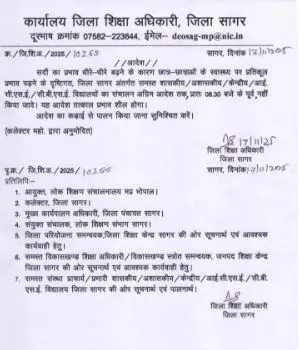 कार्यालय जिला शिक्षा अधिकारी, जिला सागर
दूरभाष क्रमांक 07582-223644, ईमेल– deosag-mp@nic.in
क्र./जि.शि.अ./2025/10268 सागर, दिनांक 17/11/2025
//आदेश//
सर्दी का प्रभाव धीरे–धीरे बढ़ने के कारण छात्र–छात्राओं के स्वास्थ्य पर प्रतिकूल
प्रभाव पड़ने के दृष्टिगत, जिला सागर अंतर्गत समस्त शासकीय/अशासकीय/केन्द्रीय/आई.
सी.एस.ई./सी.बी.एस.ई. विद्यालयों का संचालन अग्रिम आदेश तक, प्रातः 08.30 बजे के पूर्व, नहीं
किया जावे। यह आदेश तत्काल प्रभाव शील होगा।
आदेश का कड़ाई से पालन किया जाना सुनिश्चित करें।
(कलेक्टर महो. द्वारा अनुमोदित)
17/11/25
जिला शिक्षा अधिकारी
जिला सागर
पृ.क्र./जि.शि.अ./2025/10268 सागर, दिनांक 17/11/2025
प्रतिलिपि:–
1. आयुक्त, लोक शिक्षण संचालनालय मप्र भोपाल।
2. कलेक्टर, जिला सागर।
3. मुख्य कार्यपालन अधिकारी, जिला पंचायत सागर।
4. संयुक्त संचालक, लोक शिक्षण संभाग सागर।
5. जिला परियोजना समन्वयक, जिला शिक्षा केन्द्र सागर की ओर सूचनार्थ एवं आवश्यक
कार्यवाही हेतु।
6. समस्त विकासखण्ड शिक्षा अधिकारी/विकासखण्ड स्त्रोत समन्वयक, जनपद शिक्षा केन्द्र
जिला सागर की ओर सूचनार्थ एवं आवश्यक कार्यवाही हेतु।
7. समस्त संस्था प्राचार्य/प्रभारी शासकीय/अशासकीय/केन्द्रीय/आई.सी.एस.ई./सी.बी.
एस.ई. विद्यालय जिला सागर की ओर सूचनार्थ एवं पालनार्थ।
जिला शिक्षा अधिकारी
जिला सागर